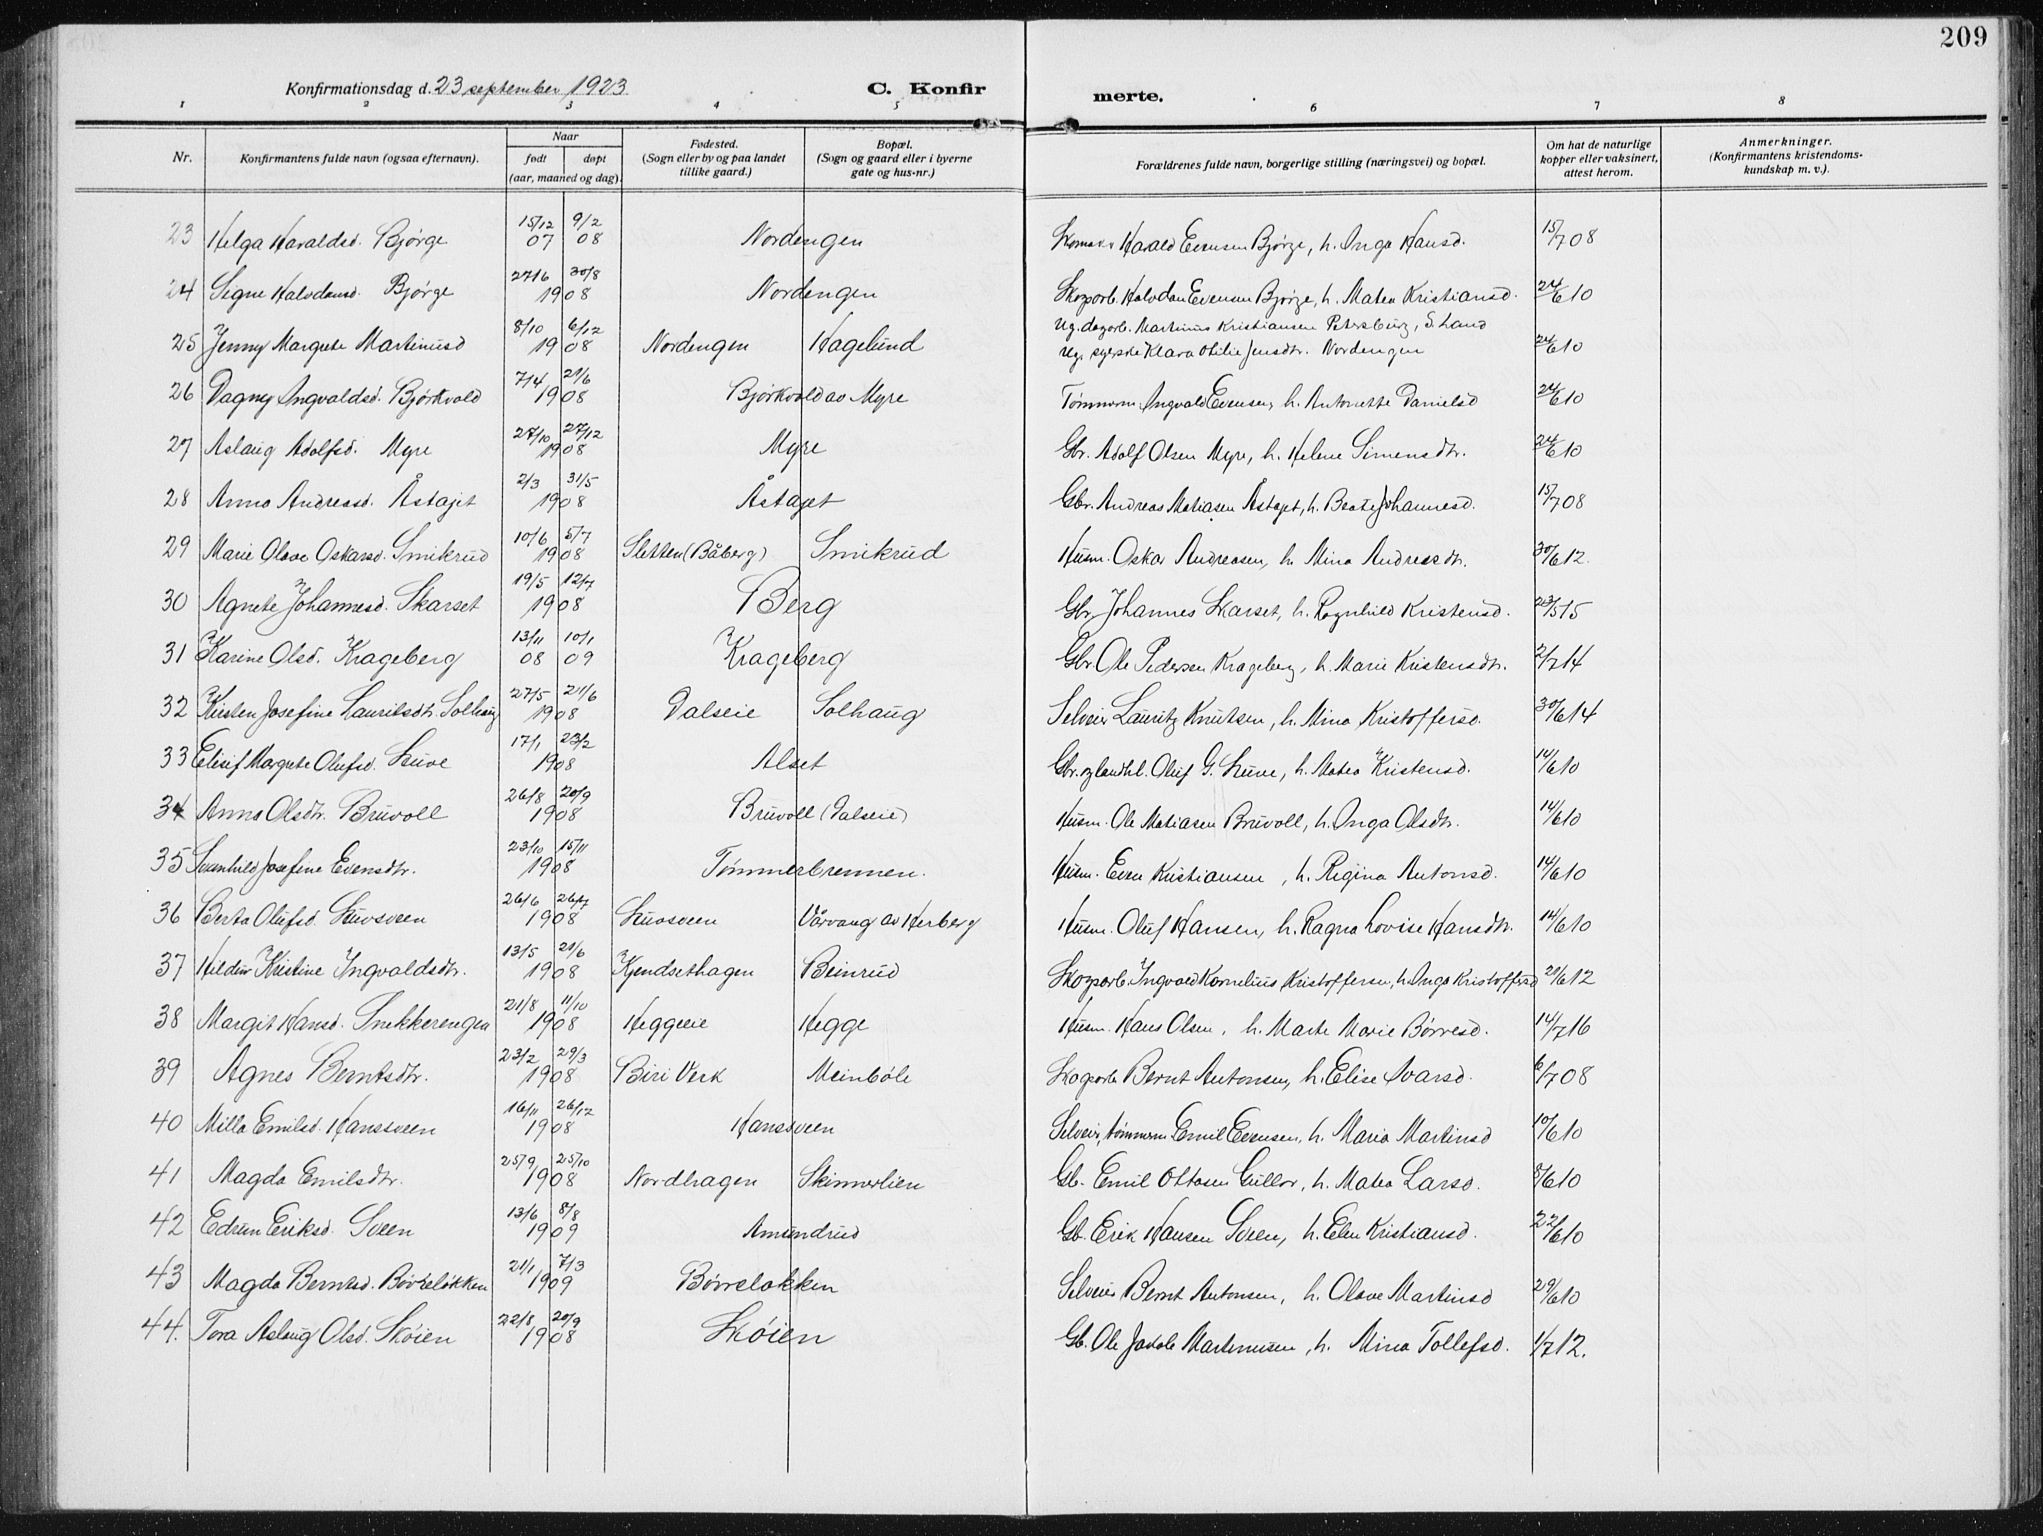 209
Konfirmationsdag d. 23 september 1923
C. Konfir
merte.
1 2 3 4 5 6 7 8
Nr.
Konfirmantens fulde navn (ogsaa efternavn).
Naar
født døpt
(aar, maaned og dag).
Fødested.
(Sogn eller by og paa landet
tillike gaard.)
Bopæl.
(Sogn og gaard eller i byerne
gate og hus-nr.)
Forældrenes fulde navn, borgerlige stilling (næringsvei) og bopæl.
Om hat de naturlige
kopper eller vaksinert,
attest herom.
Anmerkninger.
(Konfirmantens kristendoms-
kundskap m. v.).
23 Helga Haraldsd. Bjørge 15/12 07 9/2 08 Nordengen Harald Evensen Bjørge, h. Inga Hansd. 15/7 08
24 Signe Halvdansd. Bjørge 27/6 30/8 1908 Nordengen Skogarb. Halvdan Evensen Bjørge, h. Matea Kristiansd. 24/6 10
25 Jenny Margrete Martinusd 8/10 6/12 1908 Nordengen Hagelund Ug. dagarb. Martinus Kristiansen Petersburg, S. Land
Ug. syerske Klara Otilie Jensdtr. Nordengen 24/6 10
26 Dagny Ingvaldsd. Bjørkvold 7/4 21/6 1908 Bjørkvold av Myre Tømmerm. Ingvald Evensen, h. Antonette Danielsd 24/6 10
27 Aslaug Adolfsd. Myre 27/10 27/12 1908 Myre Gbr. Adolf Olsen Myre, h. Helene Simensdtr. 24/6 10
28 Anna Andreasd. Åstajet 2/3 31/5 1908 Åstajet Gbr. Andreas Matiasen Åstajet, h. Beate Johannesd. 15/7 08
29 Marie Olave Oskarsd. Smikrud 10/6 5/7 1908 Sletten (Båberg) Smikrud Husm. Oskar Andreasen, h. Mina Andreasdtr. 30/6 12.
30 Agnete Johannesd. Skarset 19/5 12/7 1908 Berg Gbr. Johannes Skarset, h. Ragnhild Kristensd. 23/5 15
31 Karine Olsd. Krageberg 13/11 08 10/1 09 Krageberg Gbr. Ole Pedersen Krageberg, h. Marie Kristensdtr. 2/7 14
32 Kirsten Josefine Lauritsdtr. Solhaug 27/5 21/6 1908 Dalseie Solhaug Selveier Lauritz Knutsen, h. Mina Kristoffersd. 30/6 14
33 Elisif Margrete Olufsd. Luve 17/1 23/2 1908 Alset Gbr. og landhl. Oluf G. Luve, h. Matea Kristensd. 14/6 10
34 Anna Olsdtr. Bruvoll 26/8 20/9 1908 Bruvoll (Dalseie) Husm. Ole Matiasen Bruvoll, h. Inga Olsdtr. 14/6 10
35 Svanhild Josefine Evensdtr. 23/10 15/11 1908 Tømmerbrennen. Husm. Even Kristiansen, h. Regina Antonsd. 14/6 10
36 Berta Olufsd. 26/6 26/7 1908 Vårvang av Herberg Husm. Oluf Hansen, h. Ragna Lovise Hansdtr. 14/6 10
37 Hildur Kristine Ingvaldsdtr. 13/5 21/6 1908 Kjendsethagen Beinrud Skogarb. Ingvald Kornelius Kristoffersen, h. Inga Kristoffersd 21/6 12
38 Margit Hansd. Snekkerengen 21/8 11/10 1908 Heggeeie Hegge Husm. Hans Olsen, h. Marte Marie Børresd. 14/7 16
39 Agnes Berntsdtr. 23/2 29/3 1908 Biri Verk Meinböle Skogarb Bernt Antonsen, h. Elise Ivarsd. 6/7 08
40 Milla Emilsd. Hanssveen 16/11 26/12 1908 Hanssveen Selveier, tømmerm Emil Evensen, h. Maria Martinsd 10/6 10
41 Magda Emilsdtr. 25/9 25/10 1908 Nordhagen Skinnerlien Gb. Emil Ottosen Gullor, h. Matea Larsd. 8/6 10
42 Edrun Eriksd. Sveen 13/6 8/8 1909 Amundrud Gb. Erik Hansen Sveen, h. Elen Kristiansd. 22/6 10
43 Magda Berntsd. Børreløkken 21/1 7/3 1909 Børreløkken Selveier Bernt Antonsen, h. Olave Martinsd 29/6 10
44. Tora Aslaug Olsd. Skøien 22/8 20/9 1908 Skøien Gb. Ole Jakob Martinusen, h. Mina Tollefsd. 1/7 12.